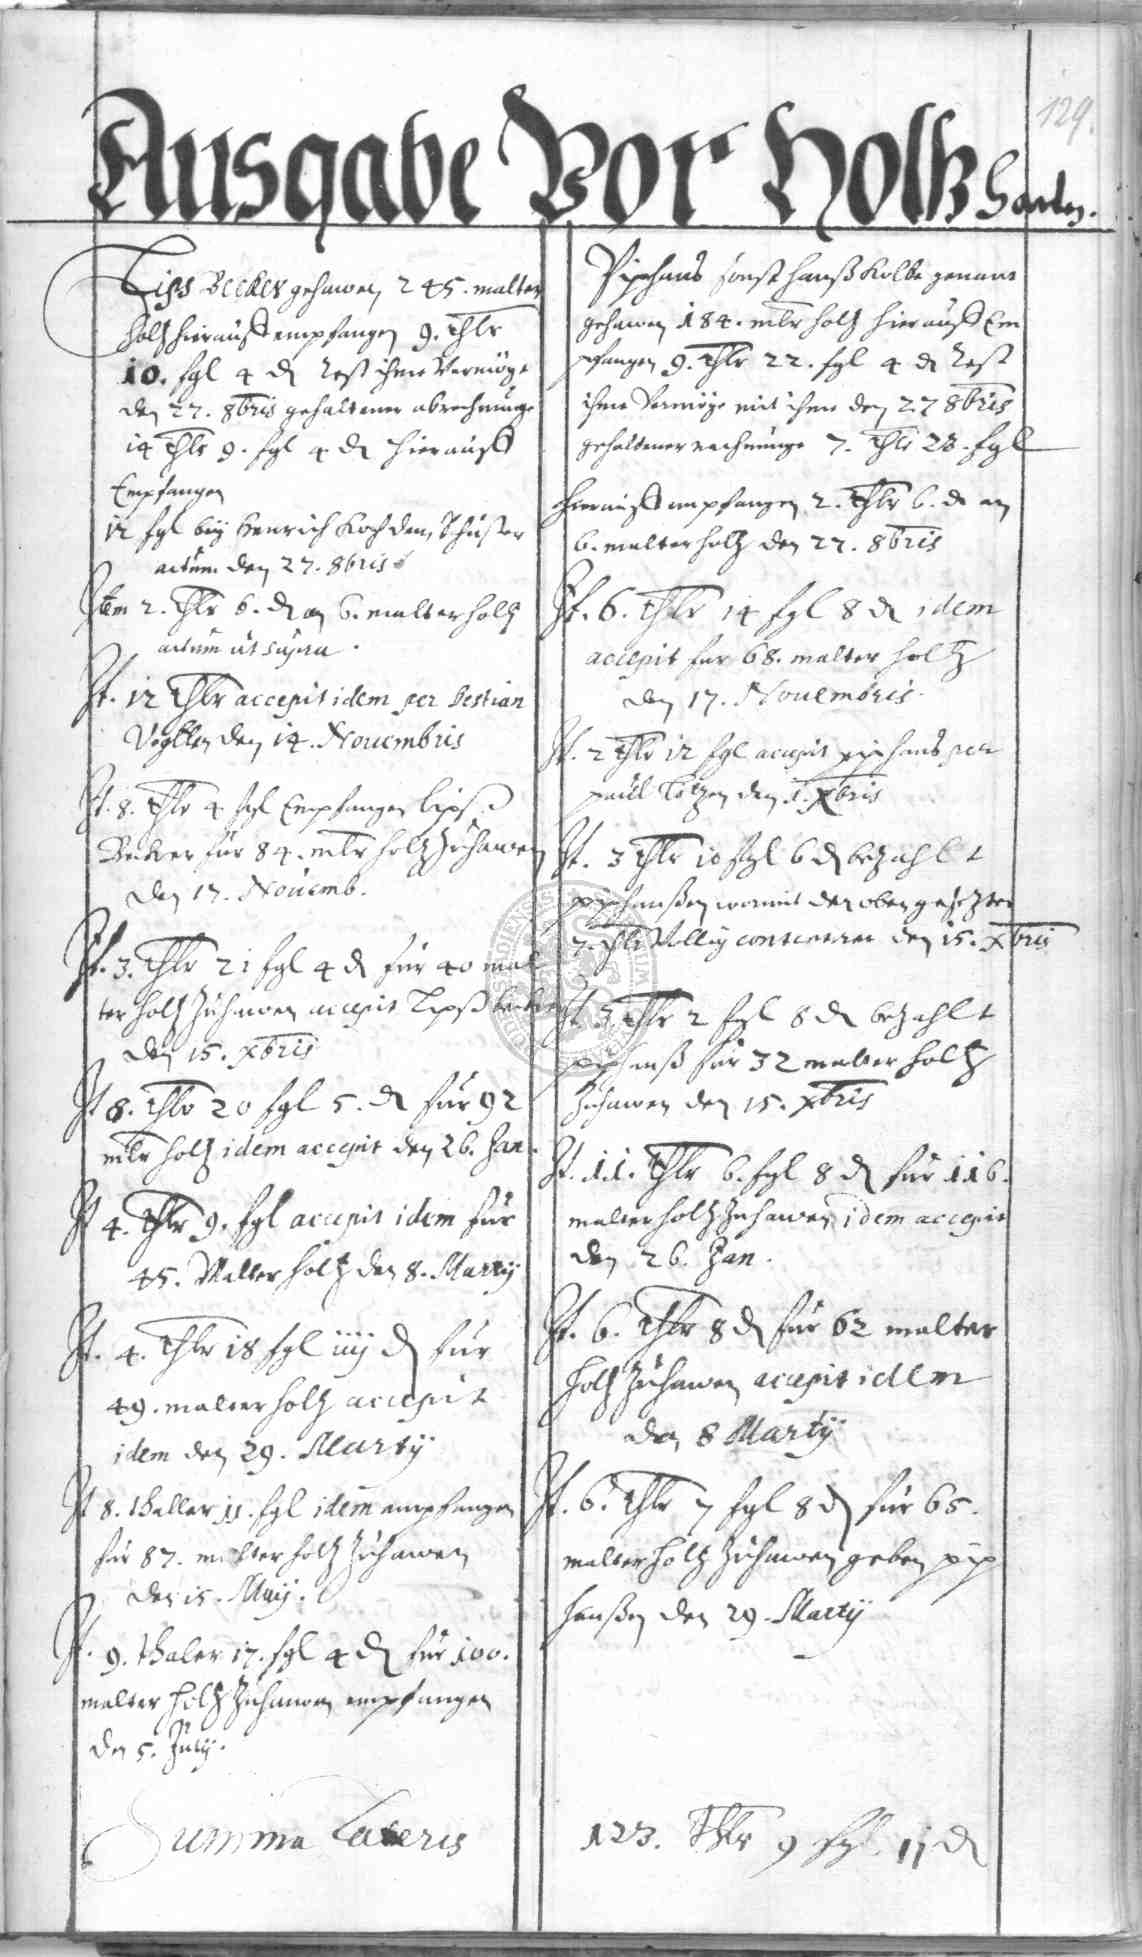 129.
Ausgabe Vor Holtz hawen.
Lips Becker gehawen 245. malter
holtz hierauß empfangen 9. Thlr
10. fgl 4 d Rest ihme Vermöge
den 27. 8bris gehaltener abrechnunge
14 Thlr 9. fgl 4 d hierauß
Empfangen
12 fgl bey Henrich Koch dem Schuster
actum den 27. 8bris
Item 2. Thlr 6. d an 6. malter holtz
actum ut supra.
It. 12 Thlr accepit idem per Bestian
Vogtten den 14. Nouembris
It. 8. Thlr 4 fgl Empfangen Lipß
Becker für 84. mlr holtz zuhawen
den 17. Nouemb.
It. 3. Thlr 21 fgl 4 d für 40 mal
ter holtz zuhawen accepit Lipß Becker
den 15. xbris
It 8. Thlr 20 fgl 5. d für 92
mlr holtz idem accepit den 26. Jan.
It 4. Thlr 9. fgl accepit idem für
45. Malter holtz den 8. Martij
It. 4. Thlr 18 fgl iiij d für
49. malter holtz accepit
idem den 29. Martij
It 8. thaller 11. fgl idem empfangen
für 87. malter holtz zuhawen
den 15. Maij.
It. 9. thaler 17. fgl 4 d für 100.
malter holtz zuhawen empfangen
den 5. Julij.
Piphans sonst hanß Kolbe genant
gehawen 184. mlr holtz hierauß Em
pfangen 9. Thlr 22. fgl 4 d Rest
ihme Vermöge mit ihme den 27 8bris
gehaltener rechnunge 7. Thlr 23. fgl
hierauß empfangen 2. Thlr 6. d an
6. malter holtz den 27. 8bris
It. 6. Thlr 14 fgl 8 d idem
accepit für 68. malter holtz
den 17. Nouembris.
It. 2 Thlr 12 fgl accepit piphans per
paul den 1. xbris
It. 3 Thlr 10 fgl 6 d bezahlt
piphanßen womit den oben gesetzten
7. Thlr Vollig den 15. xbris
It 3. Thlr 2 fgl 8 d bezahlt
piphanß für 32 malter holtz
zuhawen den 15. xbris
It. 11. Thlr 6. fgl 8 d für 116.
malter holtz zuhawen idem accepit
den 26. Jan.
It. 6. Thlr 8 d für 62 malter
holtz zuhawen accepit idem
den 8 Martij
It. 6. Thlr 7 fgl 8 d für 65.
malter holtz zuhawen geben pip
hanßen den 29. Martij
Summa Lateris 123. Thlr 9 fgl. 11 d